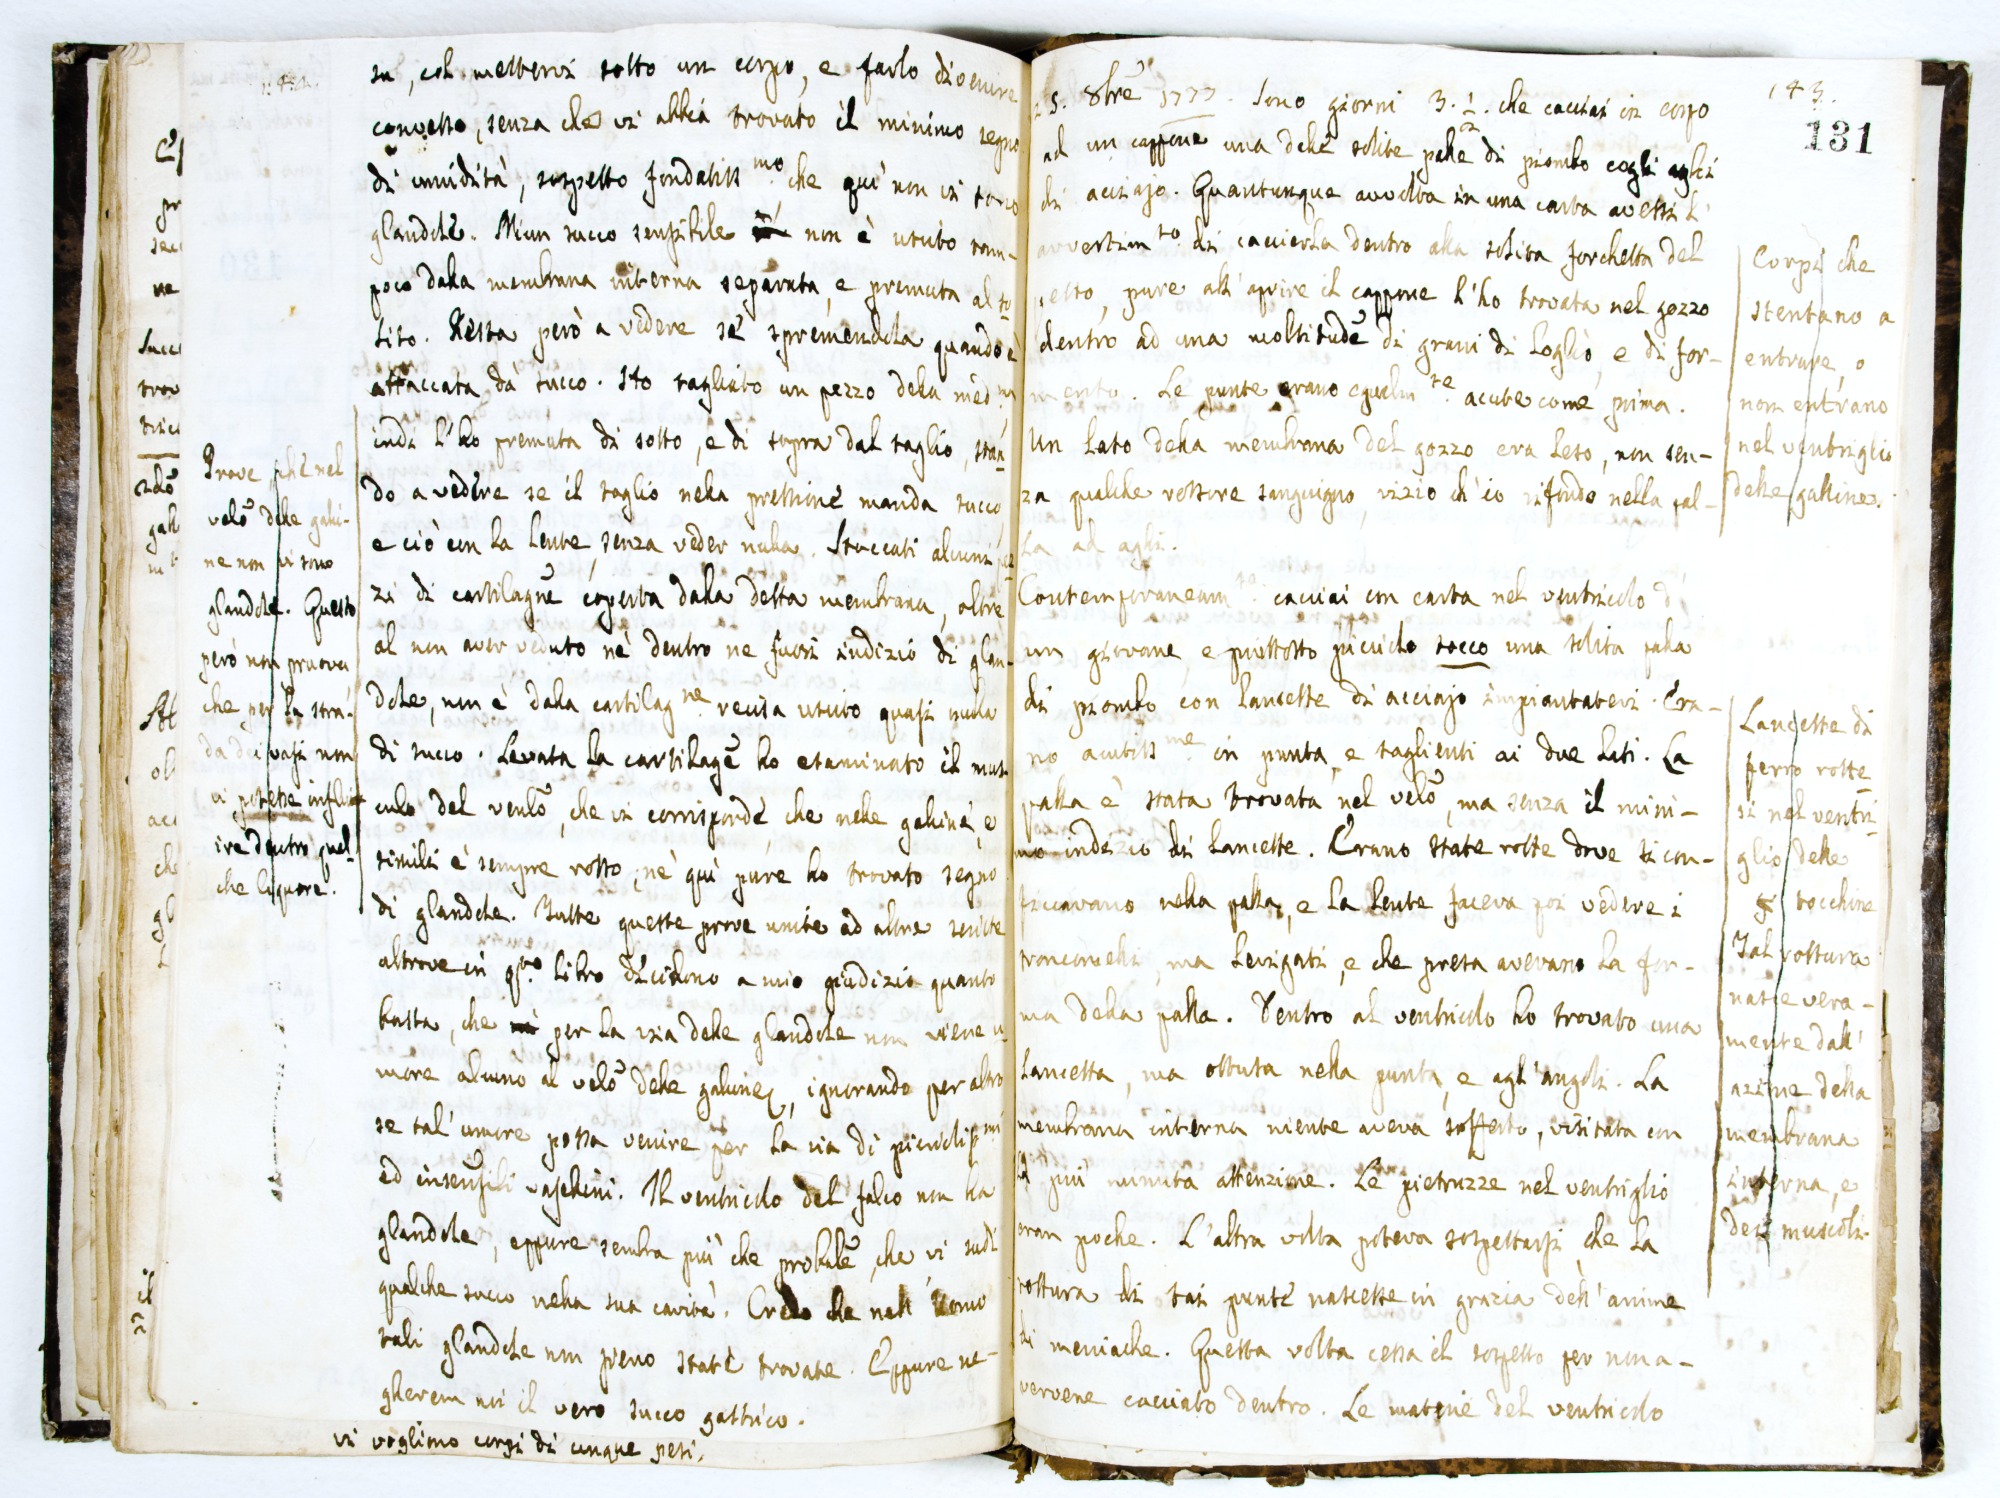 su, col mettervi sotto un corpo, e farlo divenire
convesso, senza che vi abbia trovato il minimo segno
di umidità, sospetto fondatiss.mo che quì non vi sono
glandole. Niun succo sensibile non è uscito tam-
poco dalla membrana interna separata, e premuta al so
lito. Resta però a vedere se spremendola quando è
attaccata dà succo. Ho tagliato un pezzo della med.ma
indi l'ho premuta di sotto, e di sopra dal taglio, stan
do a vedere se il taglio nella pressione manda succo
e ciò con la lente senza veder nulla. Staccati alcuni pez
zi di cartilagine coperta dalla detta membrana, oltre
al non aver veduto nè dentro ne fuori indizio di glan-
dole, non è dalla cartilag.ne recisa uscito quasi nulla
di succo. Levata la cartilage ho esaminato il mus-
culo del venlo, che vi corrisponde, che nelle galline, e
simili è sempre rosso, nè quì pure ho trovato segno
di glandole. Tutte queste prove unite ad altre scritte
altrove in q.to libro decidono a mio giudizio quanto
basta, che per la via delle glandole non viene u
more alcuno al velo delle galline, ignorando per altro
se tal'umore possa venire per la via di piccioliss.mi
ed insensibili vasellini. Il ventricolo del falco non ha
glandole, eppure sembra più che probabile, che vi sudi
qualche succo nella sua cavità. Credo che nell'uomo
tali glandole non sieno state trovate. Eppure ne-
gherem noi il vero succo gastrico.
vi vogliono corpi di cinque pesi.
Prove, chè nel
velo delle galli-
ne non vi sono
glandole. Questo
però non pruova,
che per la stra-
da dei vasi non
vi potesse influ
ire dentro qual-
che liquore.
143.
131
5. 8bre 1777. Sono giorni 3. 1/2. che cacciai in corpo
ad un cappone una delle solite palle di piombo cogli aghi
di acciajo. Quantunque avvolta in una carta avessi l'
avvertim.to di cacciarla dentro alla solita forchetta del
petto, pure all'aprire il cappone l'ho trovata nel gozzo
dentro ad una moltitudine di grani di loglio, e di for-
mento. Le punte erano egualm.te acute come prima.
Un lato della membrana del gozzo era leso, non sen-
za qualche rossore sanguigno, vizio ch'io rifondo nella pal-
la ad aghi.
Contemporaneam.te cacciai con carta nel ventricolo d
un giovane, e piuttosto picciolo tocco una solita palla
di piombo con lancette di acciajo impiantatevi. Era-
no acutiss.me in punta, e taglienti ai due lati. La
palla è stata trovata nel velo, ma senza il mini-
mo indizio di lancette. Erano state rotte dove si con-
ficcavano nella palla, e la lente faceva poi vedere i
tronconcelli, ma levigati, e che presa avevano la for-
ma della palla. Dentro al ventricolo ho trovato una
lancetta, ma ottusa nella punta, e agl'angoli. La
membrana interna niente aveva sofferto, visitata con
la più minuta attenzione. Le pietruzze nel ventriglio
eran poche. L'altra volta poteva sospettarsi che la
rottura di tai punte nascesse in grazia dell'anime
di meniache. Questa volta cessa il sospetto per non a-
vervene cacciato dentro. Le materie del ventricolo
Corpi che
stentano a
entrare, o
non entrano
nel ventriglio
delle galline.
Lancette di
ferro rotte
si nel ventri
glio delle
tocchine
Tal rottura
nasce vera-
mente dall'
azione della
membrana
interna, e
dei muscoli.